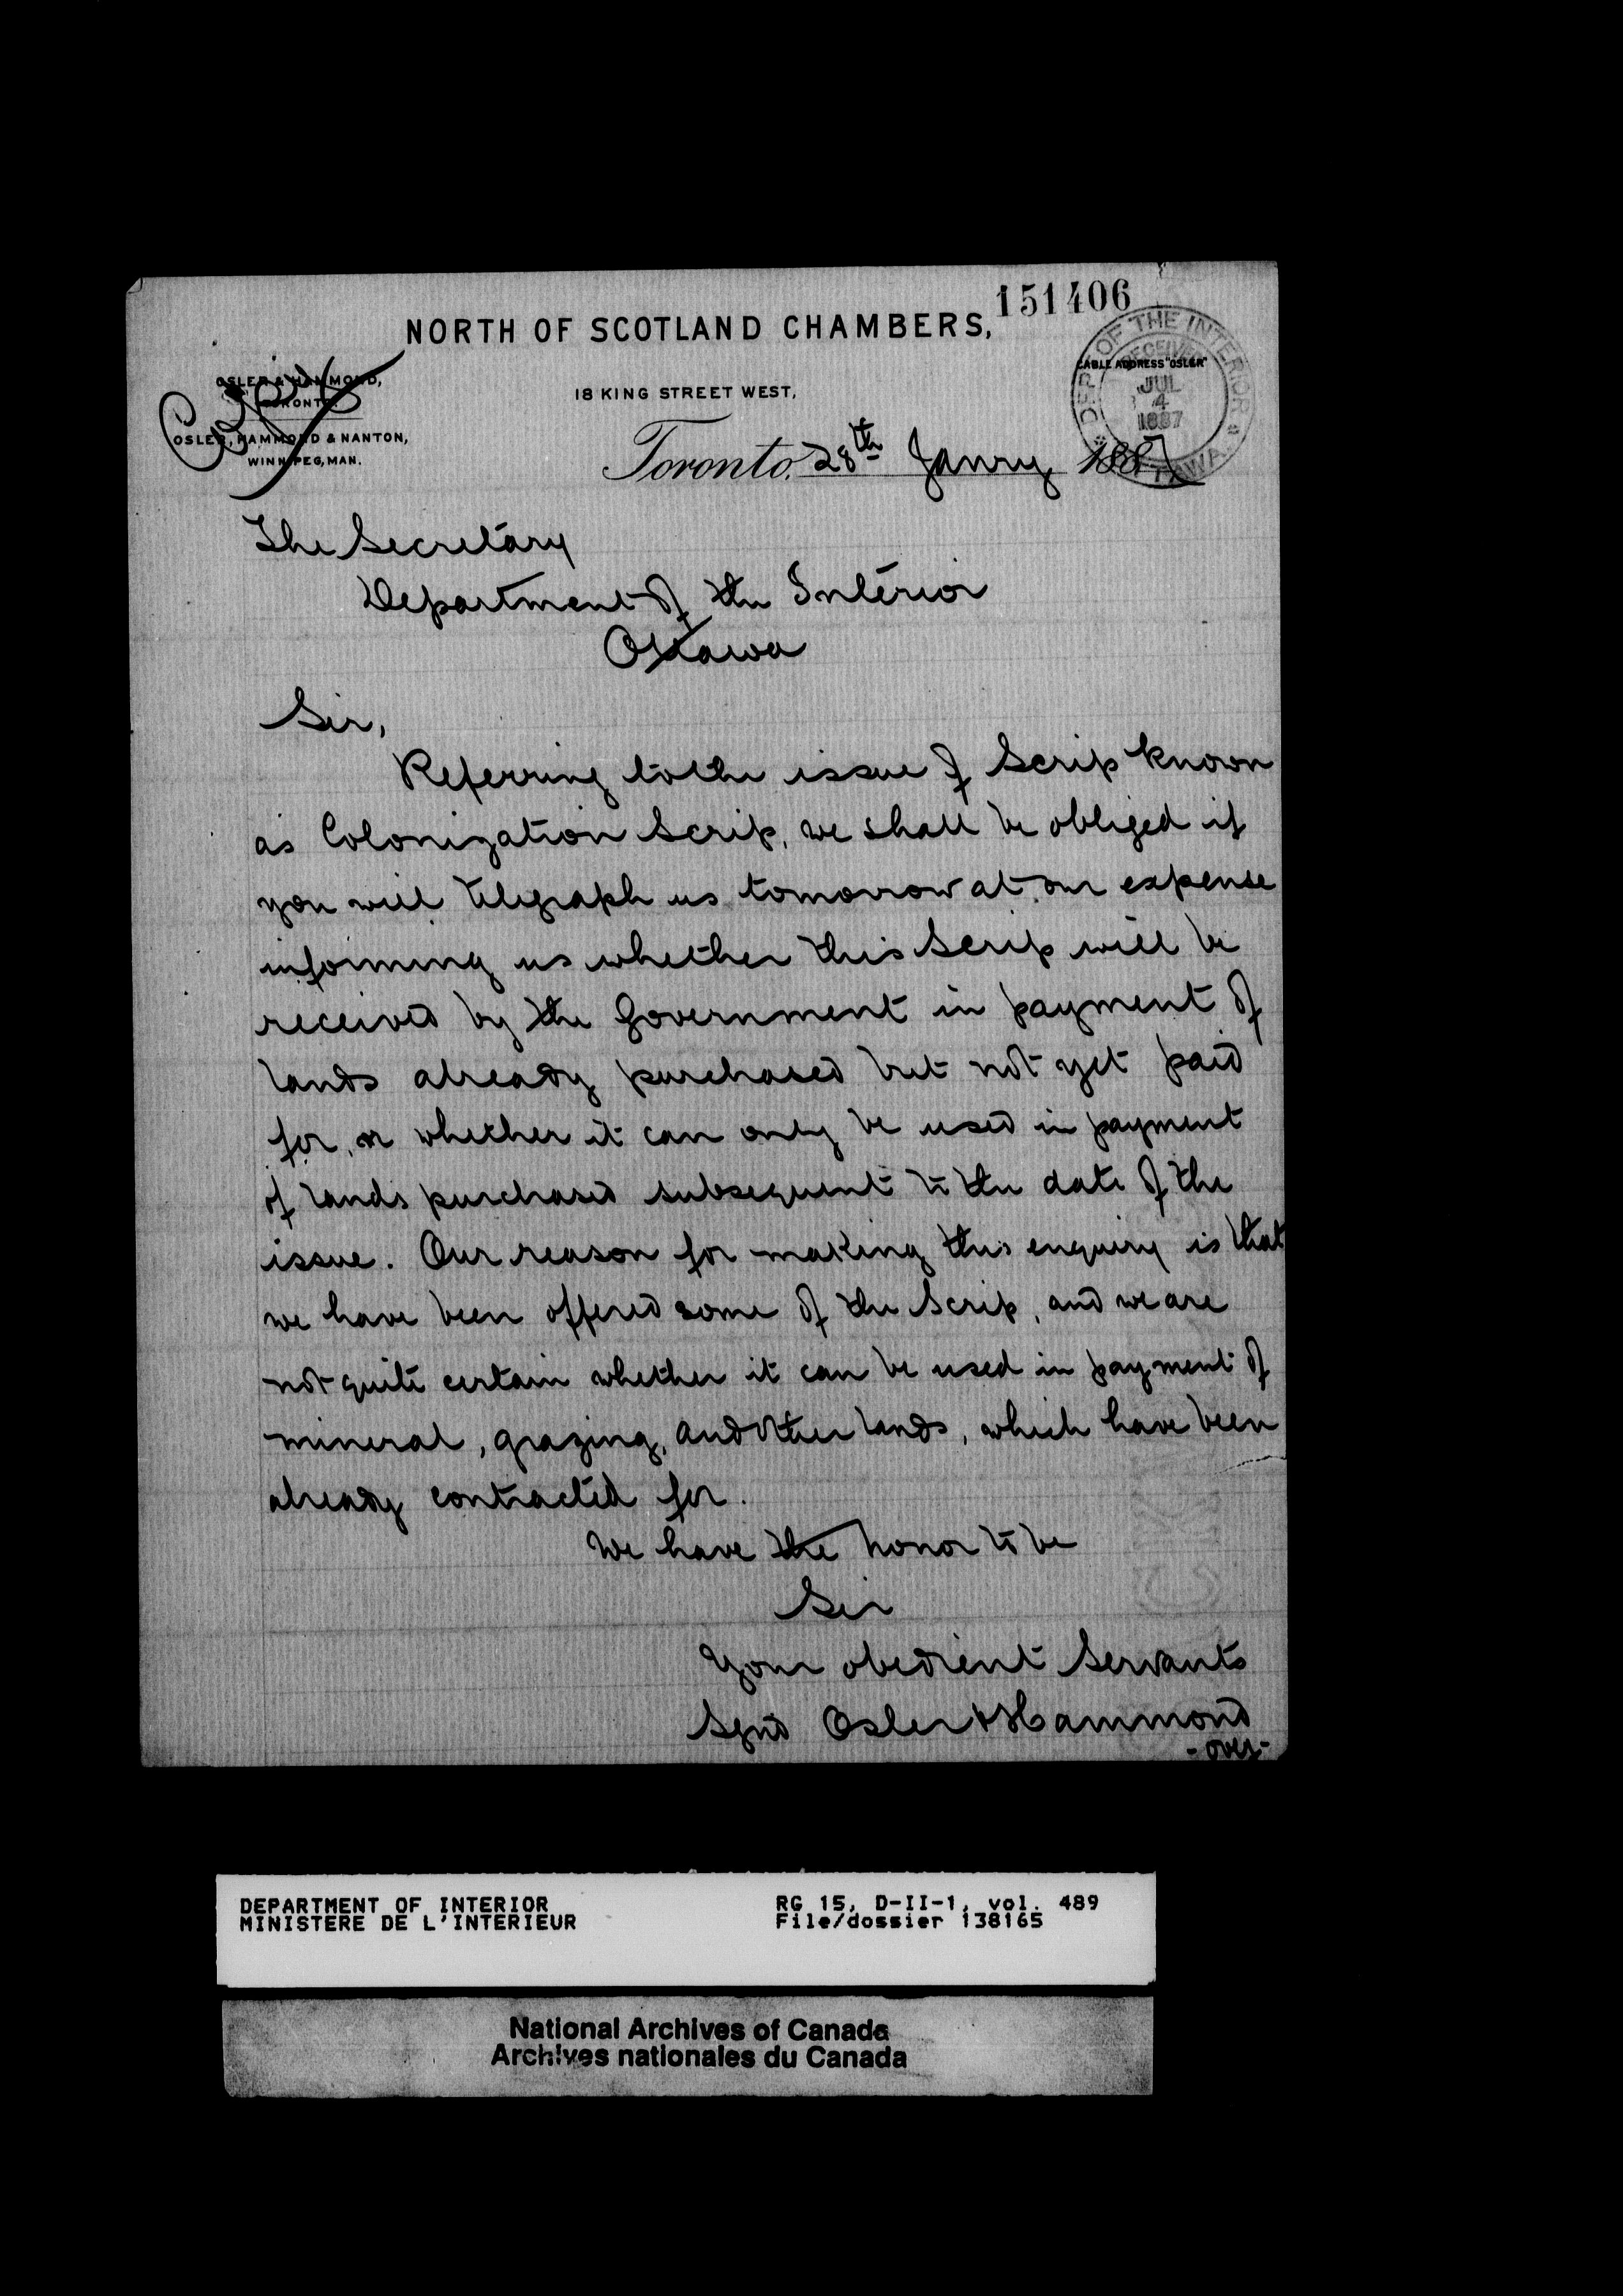 151406
NORTH OF SCOTLAND CHAMBERS,
DEPT OF THE INTERIOR
RECEIVED
JUL
4
1887
OTTAWA
CABLE ADDRESS "OSLER"
Copy
OSLER & HAMMOND,
TORONTO.
18 KING STREET WEST,
OSLER, HAMMOND & NANTON,
WINNIPEG, MAN.
Toronto, 28th Janry 1887
The Secretary
Department of the Interior
Ottawa
Sir,
Referring to the issue of Scrip known
as Colonization Scrip, we shall be obliged if
you will telegraph us tomorrow at our expense
informing us whether this Scrip will be
received by the Government in payment of
lands already purchased but not yet paid
for, or whether it can only be used in payment
of lands purchased subsequent to the date of the
issue. Our reason for making this enquiry is that
we have been offered some of the Scrip, and we are
not quite certain whether it can be used in payment of
mineral, grazing, and other lands, which have been
already contracted for.
We have the honor to be
Sir
Your obedient Servants
Sgnd Osler & Hammond
- over -
DEPARTMENT OF INTERIOR
MINISTERE DE L'INTERIEUR
RG 15, D-II-1, vol. 489
File/dossier 138165
National Archives of Canada
Archives nationales du Canada